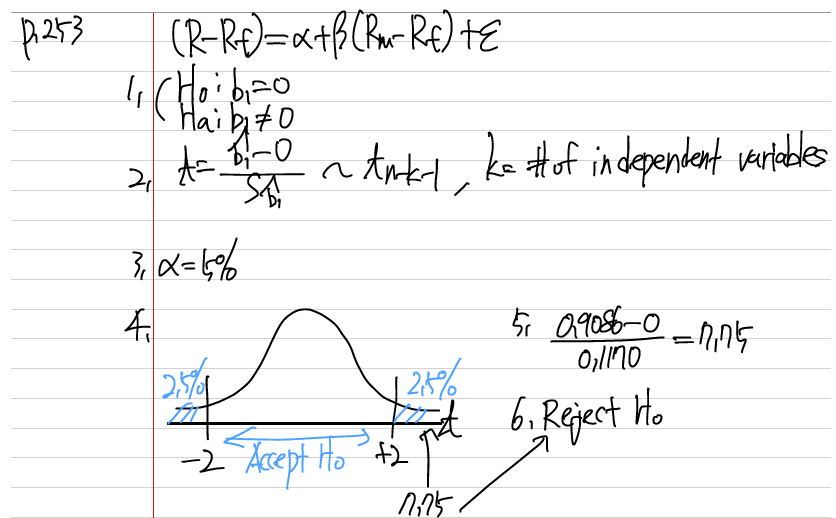 p.253
(R-Rf)=α+β(Rm-Rf)+ε
1, (H₀: b₁=0
Ha: b₁≠0
2, t= (b̂₁-0)/S_b̂₁ ~ t_{n-k-1}, k= # of independent variables
3, α=5%
4,
2,5% 2,5%
t
-2 Accept H₀ +2
7,75
5, (0,9086-0)/0,1170 = 7,75
6, Reject H₀